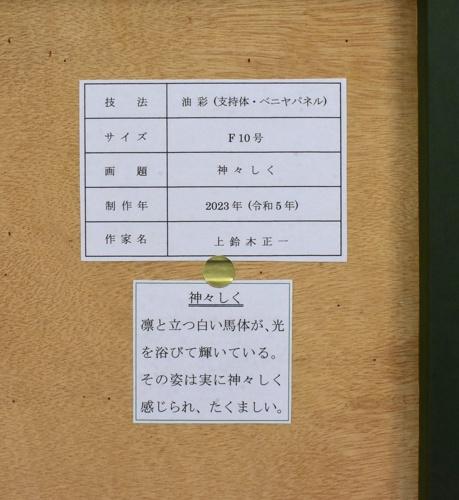 技法 油彩 (支持体・ベニヤパネル)
サイズ F10号
画題 神々しく
制作年 2023年 (令和5年)
作家名 上鈴木正一
神々しく
凛と立つ白い馬体が、光
を浴びて輝いている。
その姿は実に神々しく
感じられ、たくましい。